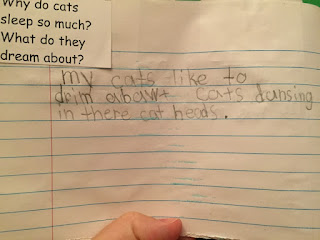 Why do cats
sleep so much?
What do they
dream about?
my cats like to
drim abawt cats dansing
in there cat heads.